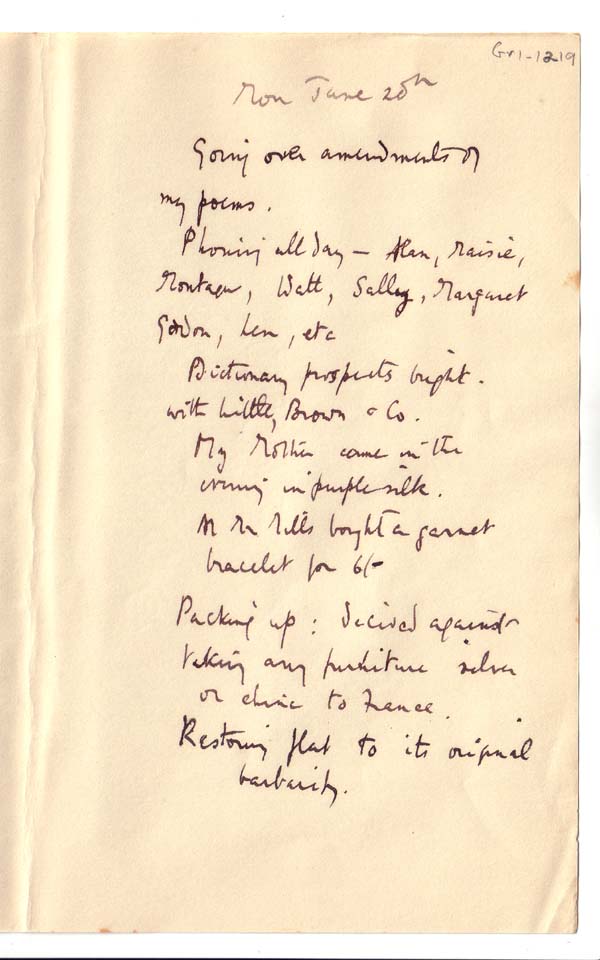 Gr1-1219
Mon June 20th
Going over amendments of
my poems.
Phoning all day – Alan, Maisie,
Montague, Watt, Sally, Margaret
Gordon, Len, etc
Dictionary prospects bright.
with Little, Brown & Co.
My Mother came in the
evening in purple silk.
bought a garnet
bracelet for 6/-
Packing up: decided against
taking any furniture silver
or china to France.
Restoring flat to its original
barbarity.